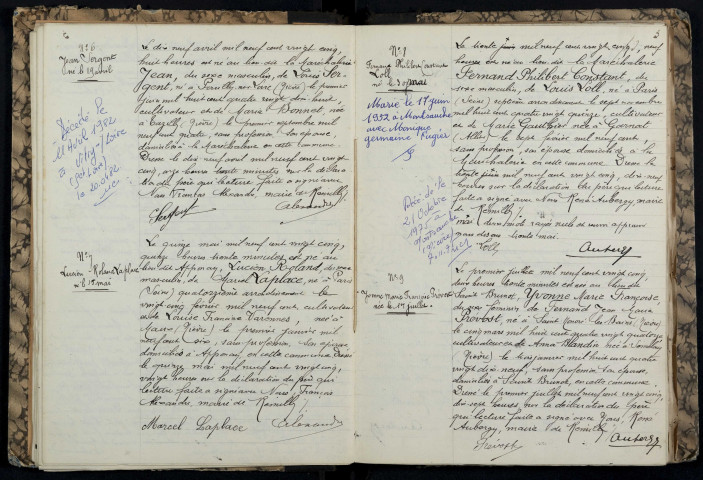 N° 6
Jean Sergont
né le 19 avril
Décédé le
21 Avril 1982
à Vitry / Loire
le 20.
Le dix neuf avril mil neuf cent vingt cinq,
huit heures est né au lieu dit la Maréchalerie
Jean, du sexe masculin, de Louis Ser-
gont, né à (Nièvre) le premier
mil huit cent quatre vingt dix huit,
cultivateur et de Marie Bonnot née
à (Nièvre) le premier septembre mil
neuf cent quatre, sans profession son épouse,
domiciliés à la Maréchalerie en cette commune
Dressé le dix neuf avril mil neuf cent vingt
cinq, onze heures trente minutes sur la déclara-
tion du père que lecture faite a signé avec
Nous François Alexandre, maire de Rémilly
Alexandre
N° 7
Lucien Roland Laplace
né le 15 mai
Le quinze mai mil neuf cent vingt cinq,
quatre heures trente minutes, est né au
lieu dit Apponay, Lucien Roland, du sexe
masculin, de Marcel Laplace, né à Paris
(Seine) quatorzième arrondissement le
vingt cinq mil neuf cent, cultivateur
et de Louise Varennes, née à
(Nièvre) le premier janvier mil
neuf cent six, sans profession, son épouse
domiciliés à Apponay, en cette commune Dressé
le quinze mai mil neuf cent vingt cinq,
vingt heures sur la déclaration du père qui
lecture faite a signé avec Nous, François
Alexandre, maire de Rémilly
Marcel Laplace Alexandre
3
N° 8
Fernand Philibert Constant
Loll
né le 30 mai
Marié le 17 juin
1952 à Montsauche
avec Monique
Germaine Rugier
Décédé le
21 Octobre
197
à
Montsauche
(Nièvre)
Le trente mil neuf cent vingt cinq, neuf
heures est né au lieu dit la Maréchalerie
Fernand Philibert Constant, du
sexe masculin, de Louis Loll, né à Paris
(Seine) arrondissement le sept novembre
mil huit cent quatre vingt quinze, cultivateur
et de Marie Gaulthier née à Gannat
(Allier) le sept février mil neuf cent
sans profession, son épouse domiciliés à la
Maréchalerie en cette commune. Dressé le
trente mil neuf cent vingt cinq, dix-neuf
heures sur la déclaration du père qui lecture
faite a signé avec Nous Rémi Aubergy, maire
de Rémilly
mai
mais disons trente mai.
Loll Aubergy
N° 9
Yvonne Marie Françoise Prévost
née le 1er juillet
Le premier juillet mil neuf cent vingt cinq
deux heures trente minutes est née au lieu dit
Yvonne Marie Françoise,
du sexe féminin, de Fernand Jean Louis
Prévost, né à Saint Honoré les Bains (Nièvre)
le cinq mars mil huit cent quatre vingt quatorze
cultivateur et de Anna Blandin née à
(Nièvre) le mil huit cent quatre
vingt dix neuf, sans profession son épouse,
domiciliés à en cette commune.
Dressé le premier juillet mil neuf cent vingt cinq,
dix-sept heures, sur la déclaration du père
qui lecture faite a signé avec Nous, Rémi
Aubergy, maire de Rémilly
Prévost Aubergy